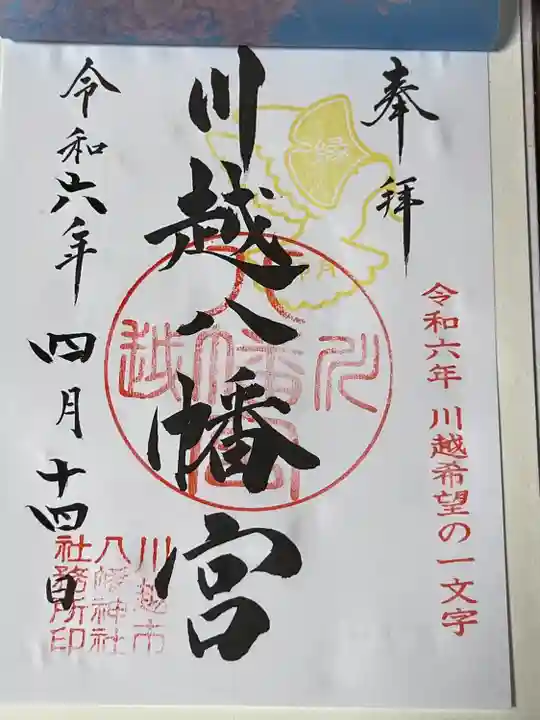 奉拝
縁
令和六年 川越希望の一文字
川越八幡宮
川越八幡宮
令和六年
四月十四日
川越市
八幡神社
社務所印